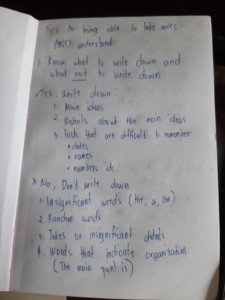 Keys to being able to take notes
AND understand:
1. Know what to write down and
what not to write down
* Yes, Write down:
1. Main ideas
2. Details about the main ideas
3. Facts that are difficult to remember
• dates
• names
• numbers etc.
* No, Don't write down
1. Insignificant words (the, a, an)
2. Random words
3. Jokes or insignificant details
4. Words that indicate organization
(The main point is)